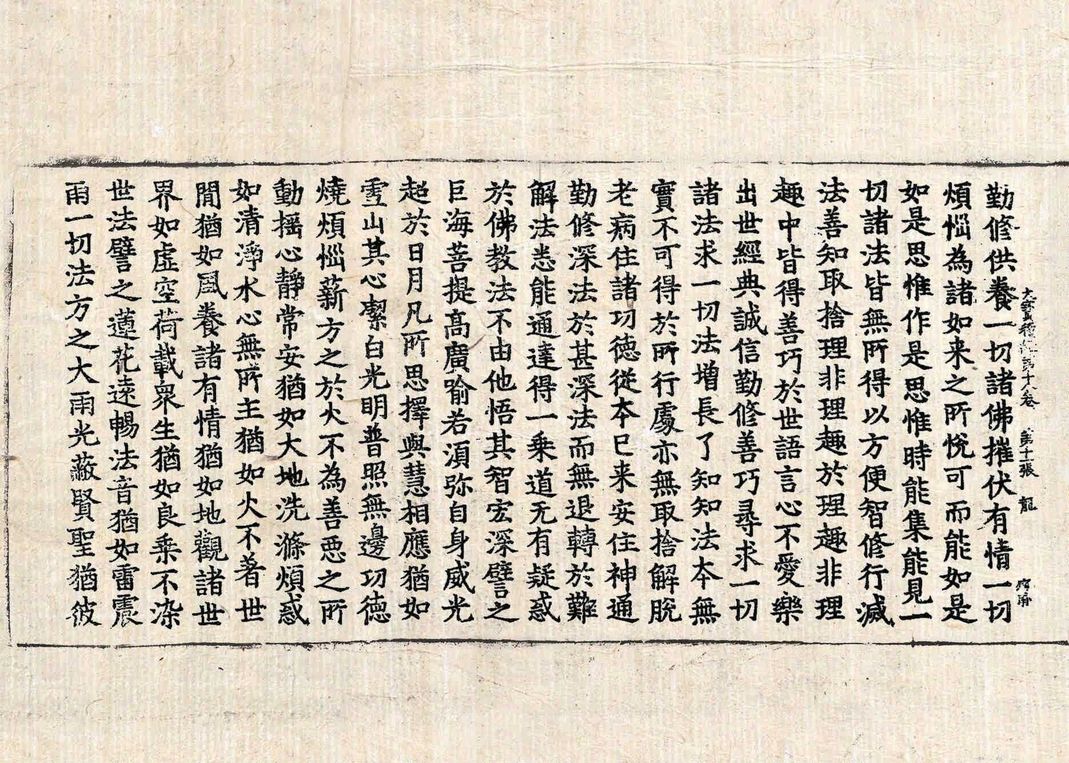 大寶積經第十八卷 第十一張 龍
勤修供養一切諸佛摧伏有情一切
煩惱為諸如来之所悅可而能如是
如是思惟作是思惟時能集能見一
切諸法皆無所得以方便智修行滅
法善知取捨理非理趣於理趣非理
趣中皆得善巧於世語言心不愛樂
出世經典誠信勤修善巧尋求一切
諸法求一切法增長了知知法本無
實不可得於所行處亦無取捨解脫
老病住諸功德從本已来安住神通
勤修深法於甚深法而無退轉於難
解法悉能通達得一乘道无有疑惑
於佛教法不由他悟其智宏深譬之
巨海菩提高廣喻若湏弥自身威光
超於日月凡所思擇與慧相應猶如
雪山其心潔白光明普照無邊功德
燒煩惱薪方之於火不為善惡之所
動搖心靜常安猶如大地洗滌煩惑
如清淨水心無所主猶如火不著世
閒猶如風養諸有情猶如地觀諸世
界如虛空荷載衆生猶如良乘不染
世法譬之蓮花遠暢法音猶如雷震
雨一切法方之大雨光蔽賢聖猶彼